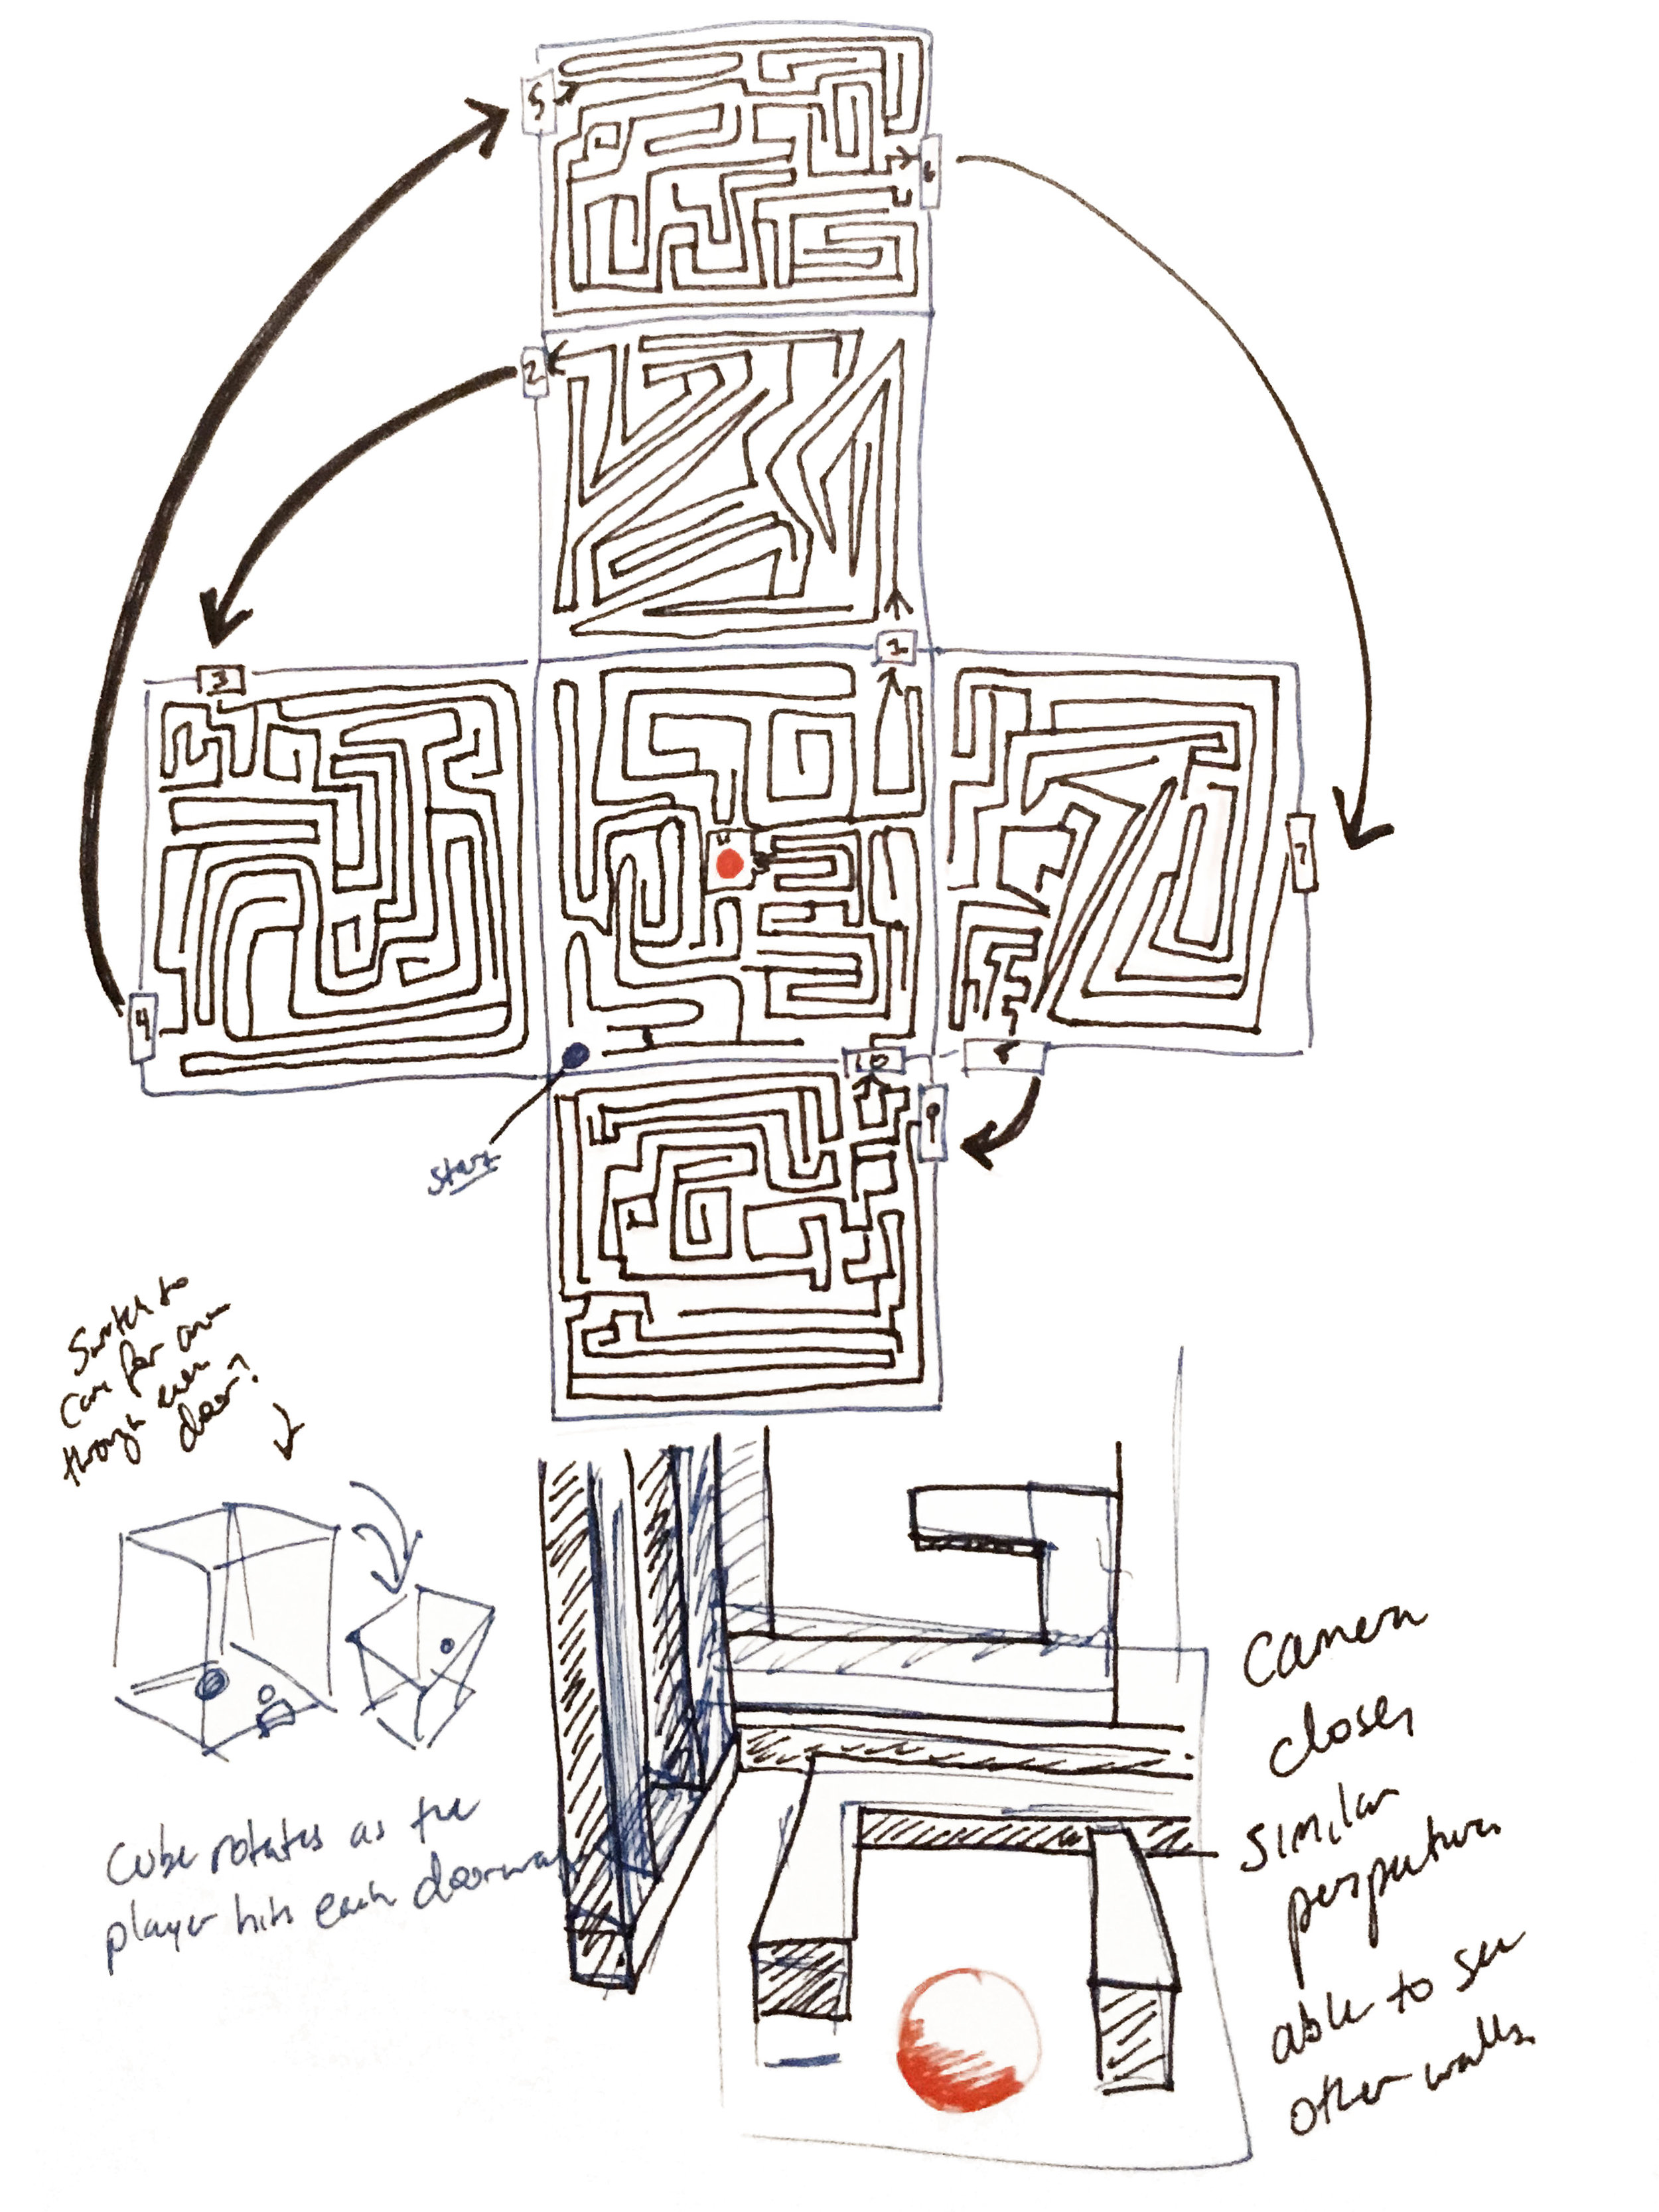 5
6
2
1
3
7
4
10
8
9
start
Switch to
cam far
through
door?
Cube rotates as the
player hits each doorway
Camera
closer
similar
perspective
able to see
other walls